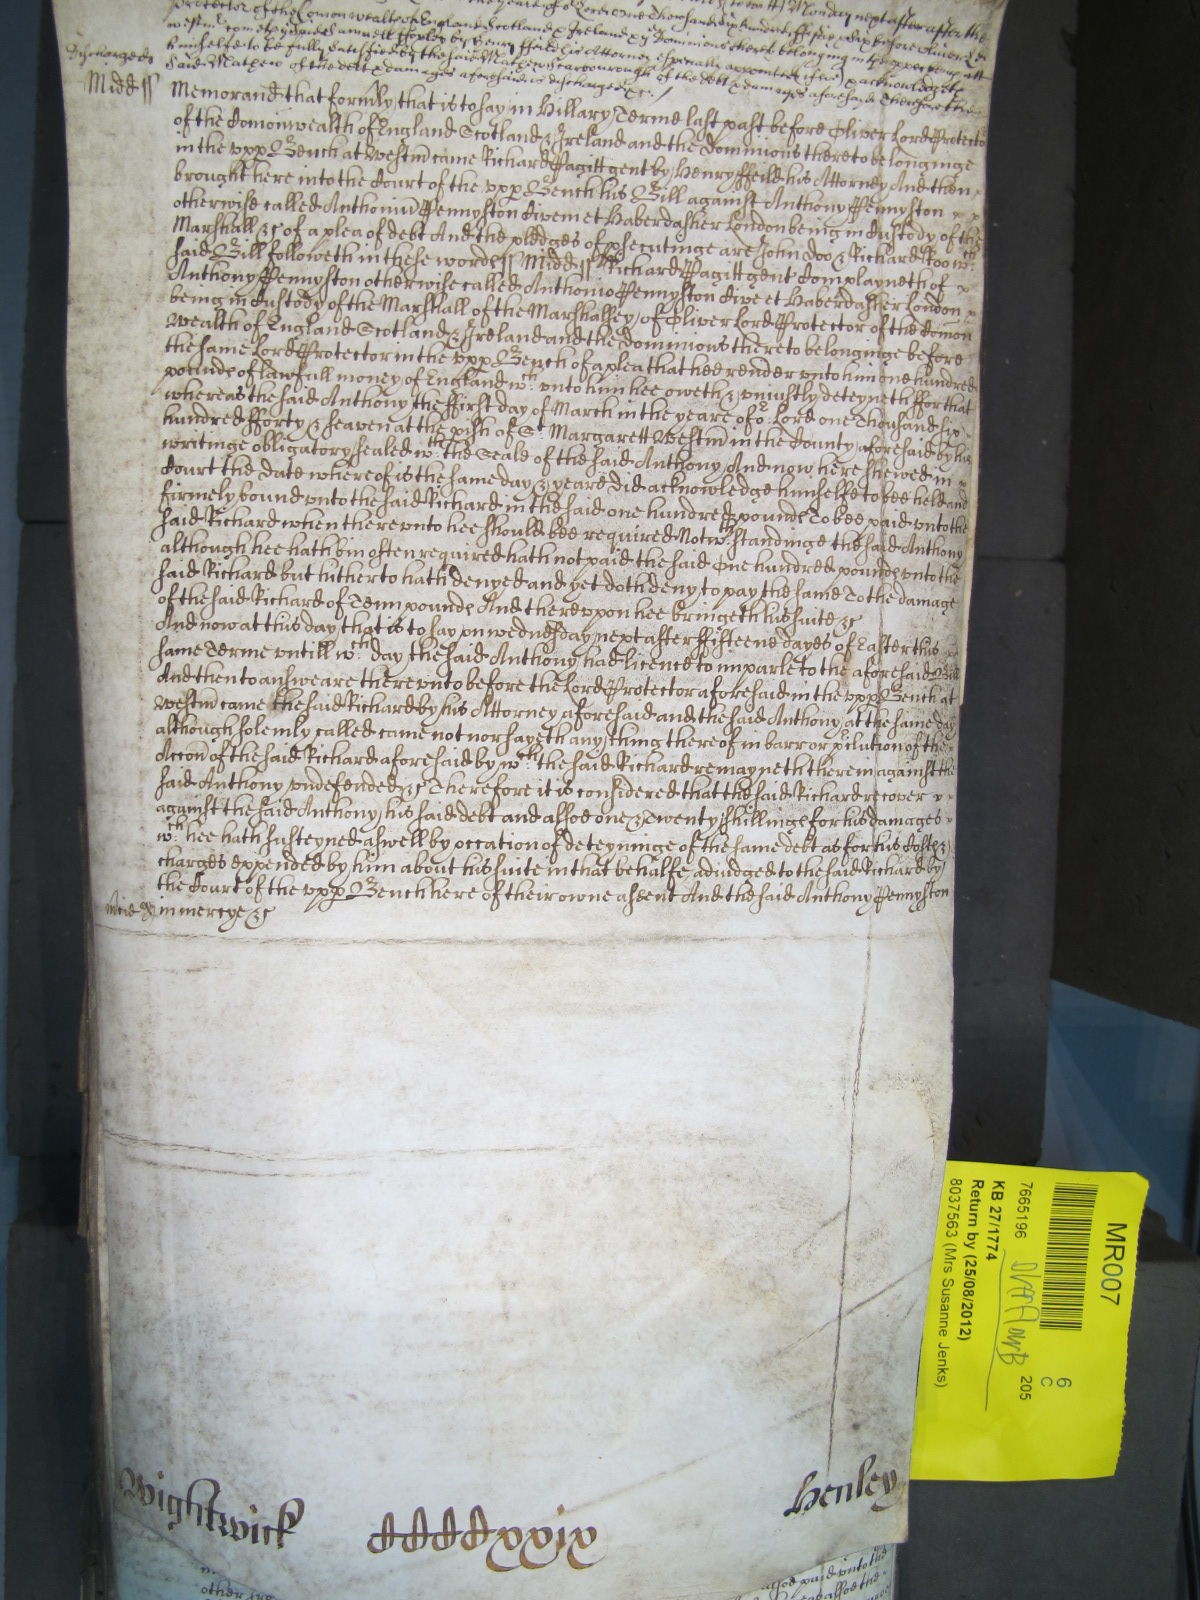 Monday next after
Protector of the Comonwealth of England Scotland & Ireland & Dominions thereto belonging in the upper bench att
himselfe to be fully satisfied by the said Mathew
Discharged
said Mathew of the debt & damages aforesaid is discharged &c
Midd ss Memorand that formerly that is to say in Hillary Terme last past before Oliver Lord Protector
of the Comonwealth of England Scotland & Ireland and the Dominions thereto belonginge
in the vpp Bench at Westm came Richard Pagitt gent by Henry Feild his Attorney And then
brought here into the Court of the vpp Bench his Bill against Anthony Pennyston
otherwise called Anthoniu Pennyston Civem et Haberdasher London being in Custody of the
Marshall &c of a plea of debt And the pledges of psecutinge are John Doo & Richard Roo wch
said Bill followeth in these words ss Midd ss Richard Pagitt gent Complayneth of
Anthony Pennyston otherwise called Anthonio Pennyston Cive et Haberdasher London
being in Custody of the Marshall of the Marshalsey of Oliver Lord Protector of the Comon
wealth of England Scotland & Ireland and the Dominions thereto belonginge before
the same Lord Protector in the vpp Bench of a plea that hee render vnto him one hundred
pounds of lawfull money of England wch vnto him hee oweth & vniustly deteyneth ffor that
whereas the said Anthony the ffirst day of March in the yeare of or Lord one Thousand six
hundred fforty & seaven at the pish of St Margarett Westm in the County aforesaid by his
writinge obligatory sealed wth the Seale of the said Anthony And now here shewed in
Court the date whereof is the same day & yeare did acknowledge himselfe to bee held and
firmely bound vnto the said Richard in the said one hundred pounds To bee paid vnto the
said Richard when therevnto hee should bee required Notwthstandinge the said Anthony
although hee hath bin often required hath not paid the said One hundred pounds vnto the
said Richard but hitherto hath denyed and yet doth deny to pay the same To the damage
of the said Richard of Tenn pounds And therevpon hee bringeth his suite &c
And now at this day that is to say on wednesday next after ffifteene dayes of Easter this
same Terme vntill wch day the said Anthony had licence to imparle to the aforesaid Bill
And then to answeare therevnto before the Lord Protector aforesaid in the vpp Bench at
Westm came the said Richard by his Attorney aforesaid and the said Anthony at the same day
although solemly called came not nor sayeth any thing thereof in barr or pclution of the
Accon of the said Richard aforesaid by wch the said Richard remayneth therein against the
said Anthony vndefended &c Therefore it is considered that the said Richard recover
against the said Anthony his said debt and alsoe one & twenty shillings for his damages
wch hee hath susteyned aswell by occation of deteyninge of the same debt as for his Costs &
charges expended by him about his suite in that behalfe adiudged to the said Richard by
the Court of the vpp Bench here of their owne assent And the said Anthony Pennyston
in mercye &c
Wightwick CCCCxxix Henley
other
paid vnto the
alsoe the
MR007
6
C
7665196
205
KB 27/1774
Return by (25/08/2012)
8037563 (Mrs Susanne Jenks)